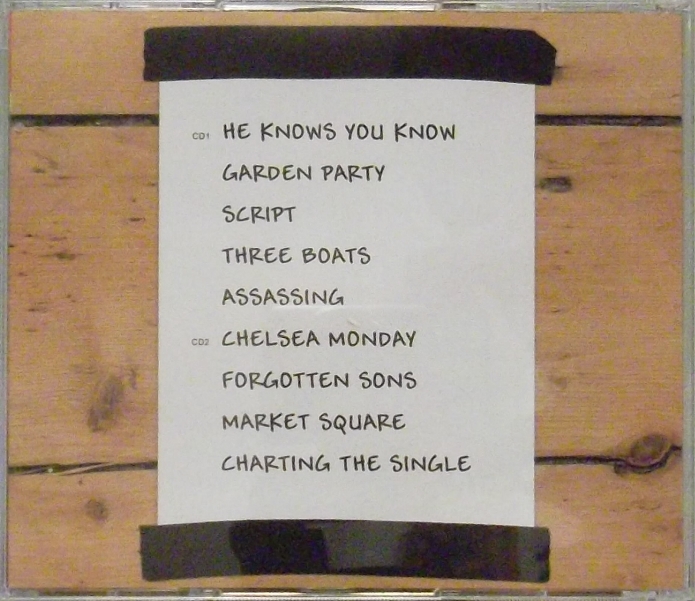 CD1 HE KNOWS YOU KNOW
GARDEN PARTY
SCRIPT
THREE BOATS
ASSASSING
CD2 CHELSEA MONDAY
FORGOTTEN SONS
MARKET SQUARE
CHARTING THE SINGLE